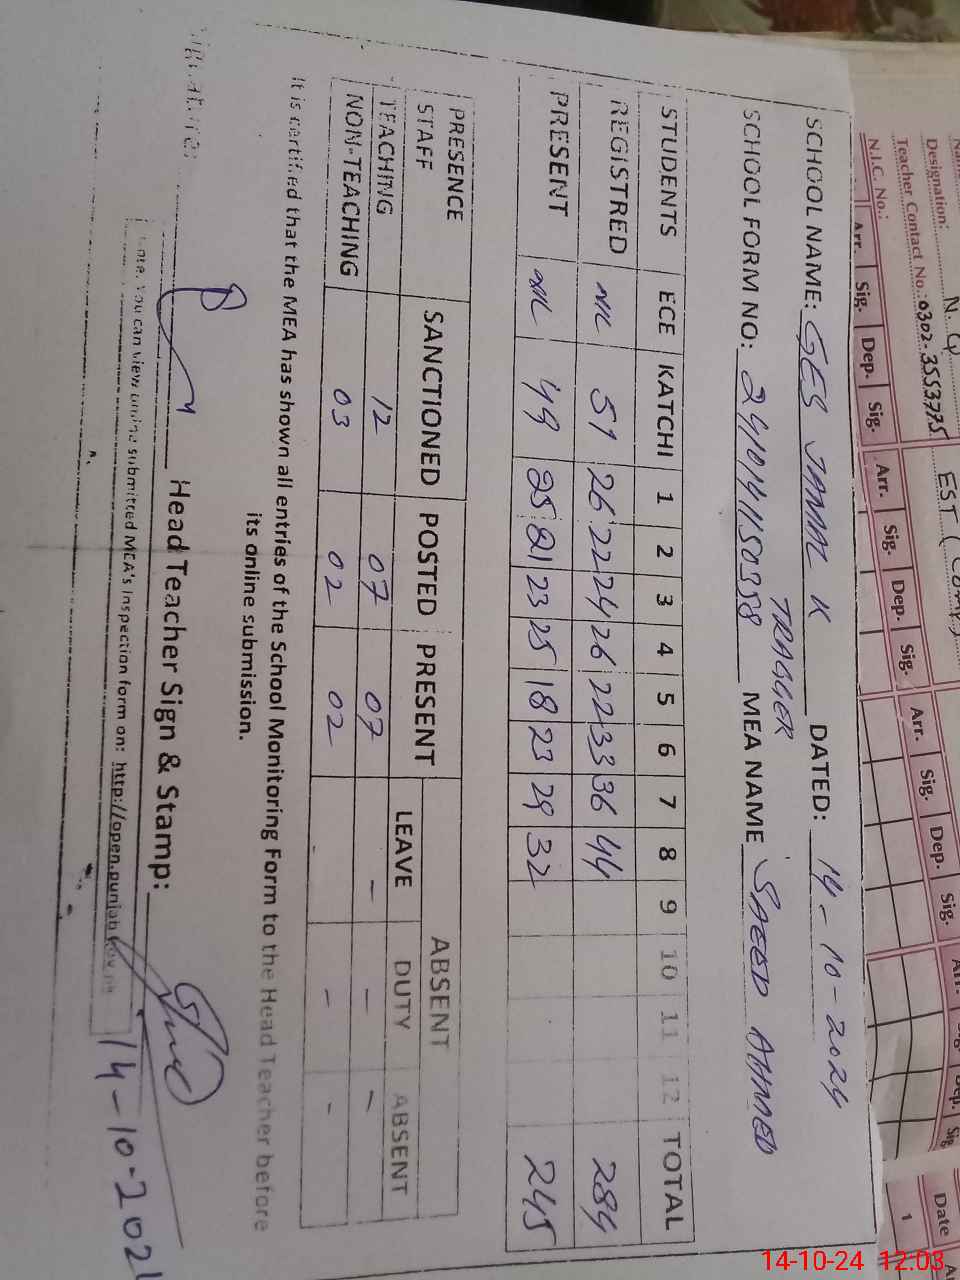 Designation:
N. Q
EST (
Teacher Contact No.: 0302-3553775
N.I.C. No.:
Arr. Sig. Dep. Sig. Arr. Sig. Dep. Sig. Arr. Sig. Dep. Sig.
Date
1
SCHOOL NAME: GES JAMAL K DATED: 14-10-2024
TRAGGER
SCHOOL FORM NO: MEA NAME SAEED AHMED
STUDENTS ECE KATCHI 1 2 3 4 5 6 7 8 9 10 11 12 TOTAL
REGISTRED NIL 51 26 22 24 26 22 33 36 44 284
PRESENT NIL 49 25 21 23 25 18 23 29 32 245
PRESENCE SANCTIONED POSTED PRESENT ABSENT
STAFF LEAVE DUTY ABSENT
TEACHING 12 07 07 - - -
NON-TEACHING 03 02 02 - - -
It is certified that the MEA has shown all entries of the School Monitoring Form to the Head Teacher before
its online submission.
Signature: Head Teacher Sign & Stamp:
Note: You can view online submitted MEA's inspection form on: http://open.punjab.gov.pk
14-10-202
14-10-24 12:03